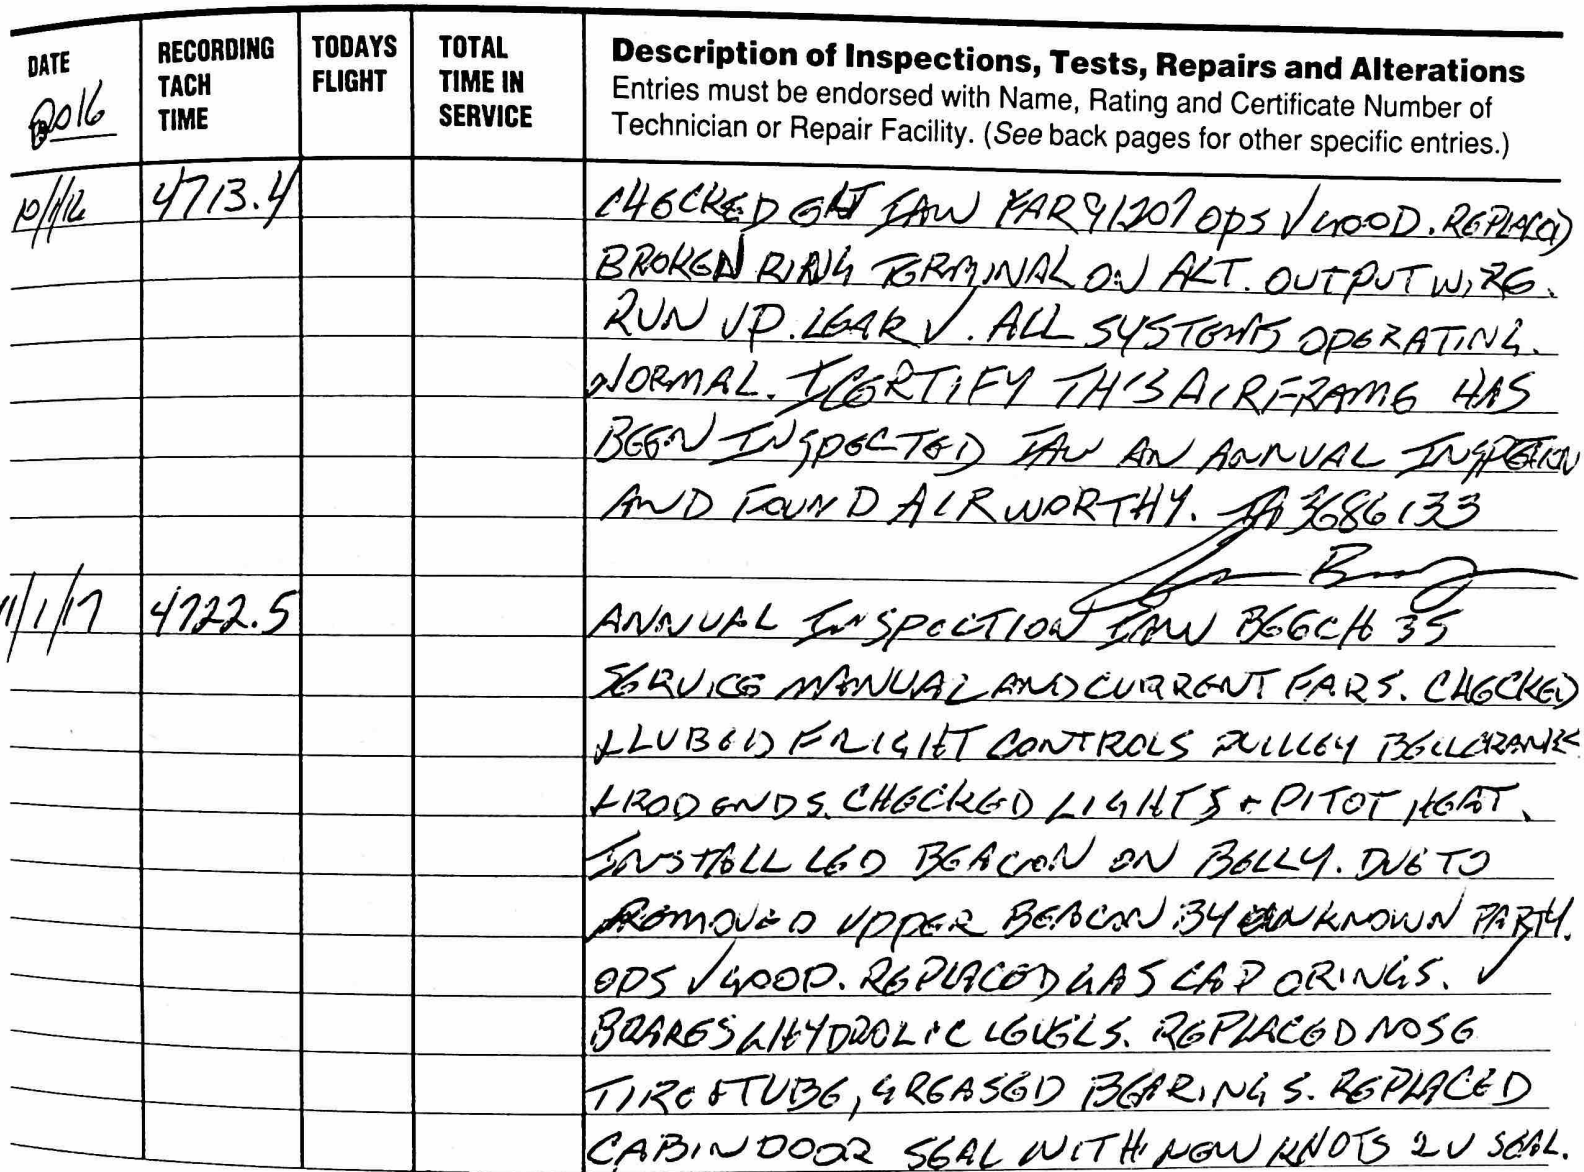 DATE
2016
RECORDING TACH TIME
TODAYS FLIGHT
TOTAL TIME IN SERVICE
Description of Inspections, Tests, Repairs and Alterations
Entries must be endorsed with Name, Rating and Certificate Number of
Technician or Repair Facility. (See back pages for other specific entries.)
4713.4 CHECKED ELT IAW FAR 91207 OPS √ GOOD. REPLACED
BROKEN RING TERMINAL ON ALT. OUTPUT WIRE.
RUN UP. LEAK √. ALL SYSTEMS OPERATING.
NORMAL. I CERTIFY THIS AIRFRAME HAS
BEEN INSPECTED IAW AN ANNUAL INSPECTION
AND FOUND AIRWORTHY. IA 3686133
11/1/17 4722.5 ANNUAL INSPECTION IAW BEECH 35
SERVICE MANUAL AND CURRENT FARS. CHECKED
& LUBED FLIGHT CONTROLS PULLEY BELLCRANKS
& ROD ENDS. CHECKED LIGHTS + PITOT HEAT.
INSTALL LED BEACON ON BELLY. DUE TO
REMOVED UPPER BEACON BY UNKNOWN PARTY.
OPS √ GOOD. REPLACED GAS CAP ORINGS. √
BRAKES & HYDROLIC LEVELS. REPLACED NOSE
TIRE & TUBE, GREASED BEARINGS. REPLACED
CABIN DOOR SEAL WITH NEW KNOTS 2U SEAL.